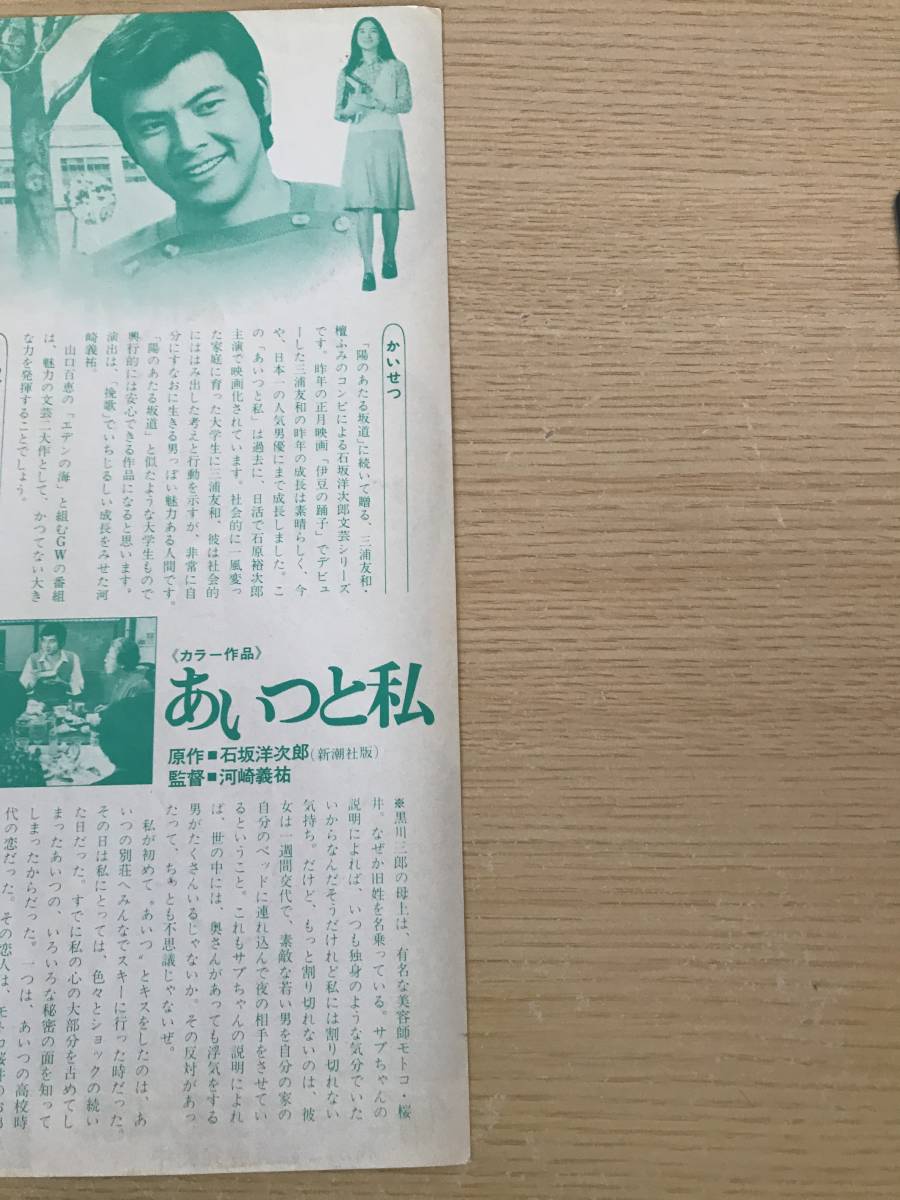 かいせつ
「陽のあたる坂道」に続いて贈る、三浦友和・
檀ふみのコンビによる石坂洋次郎文芸シリーズ
です。昨年の正月映画「伊豆の踊子」でデビュ
ーした三浦友和の昨年の成長は素晴らしく、今
や、日本一の人気男優にまで成長しました。こ
の「あいつと私」は過去に、日活で石原裕次郎
主演で映画化されています。社会的に一風変っ
た家庭に育った大学生に三浦友和、彼は社会的
にははみ出した考えと行動を示すが、非常に自
分にすなおに生きる男っぽい魅力ある人間です。
「陽のあたる坂道」と似たような大学生もので
興行的には安心できる作品になると思います。
演出は、「挽歌」でいちじるしい成長をみせた河
崎義祐。
山口百恵の「エデンの海」と組むGWの番組
は、魅力の文芸二大作として、かつてない大き
な力を発揮することでしょう。
《カラー作品》
あいつと私
原作■石坂洋次郎(新潮社版)
監督■河崎義祐
※黒川三郎の母上は、有名な美容師モトコ・桜
井。なぜか旧姓を名乗っている。サブちゃんの
説明によれば、いつも独身のような気分でいた
いからなんだそうだけれど私には割り切れない
気持ち。だけど、もっと割り切れないのは、彼
女は一週間交代で、素敵な若い男を自分の家の
自分のベッドに連れ込んで夜の相手をさせてい
るということ。これもサブちゃんの説明によれ
ば、世の中には、奥さんがあっても浮気をする
男がたくさんいるじゃないか。その反対があっ
たって、ちぁとも不思議じゃないぜ。
私が初めて〝あいつ〟とキスをしたのは、あ
いつの別荘へみんなでスキーに行った時だった。
その日は私にとっては、色々とショックの続い
た日だった。すでに私の心の大部分を占めてし
まったあいつの、いろいろな秘密の面を知って
しまったからだった。一つは、あいつの高校時
代の恋だった。その恋人は、モトコ桜井のお弟